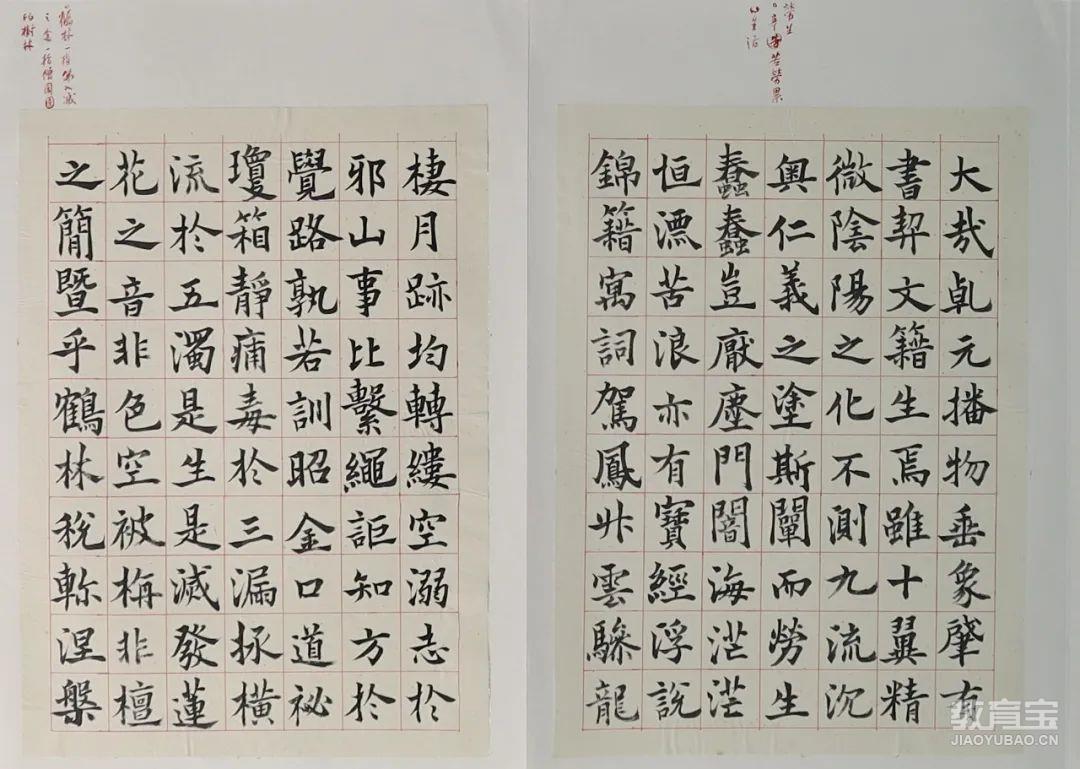 勞生
辛苦勞累
的生活
大哉乹元播物垂象肇有
書契文籍生焉雖十翼精
微陰陽之化不測九流沉
奧仁義之塗斯闡而勞生
蠢蠢豈厭塵門闇海茫茫
恒漂苦浪亦有寶經浮說
錦籍寓詞駕鳳升雲驂龍
鶴林
的樹林
棲月跡均轉縷空溺志於
邪山事比繫繩詎知方於
覺路孰若訓昭金口道祕
瓊箱靜痡毒於三漏拯橫
流於五濁是生是滅發蓮
花之音非色空被栴非檀
之簡暨乎鶴林稅軫涅槃
教育宝
JIAOYUBAO.CN